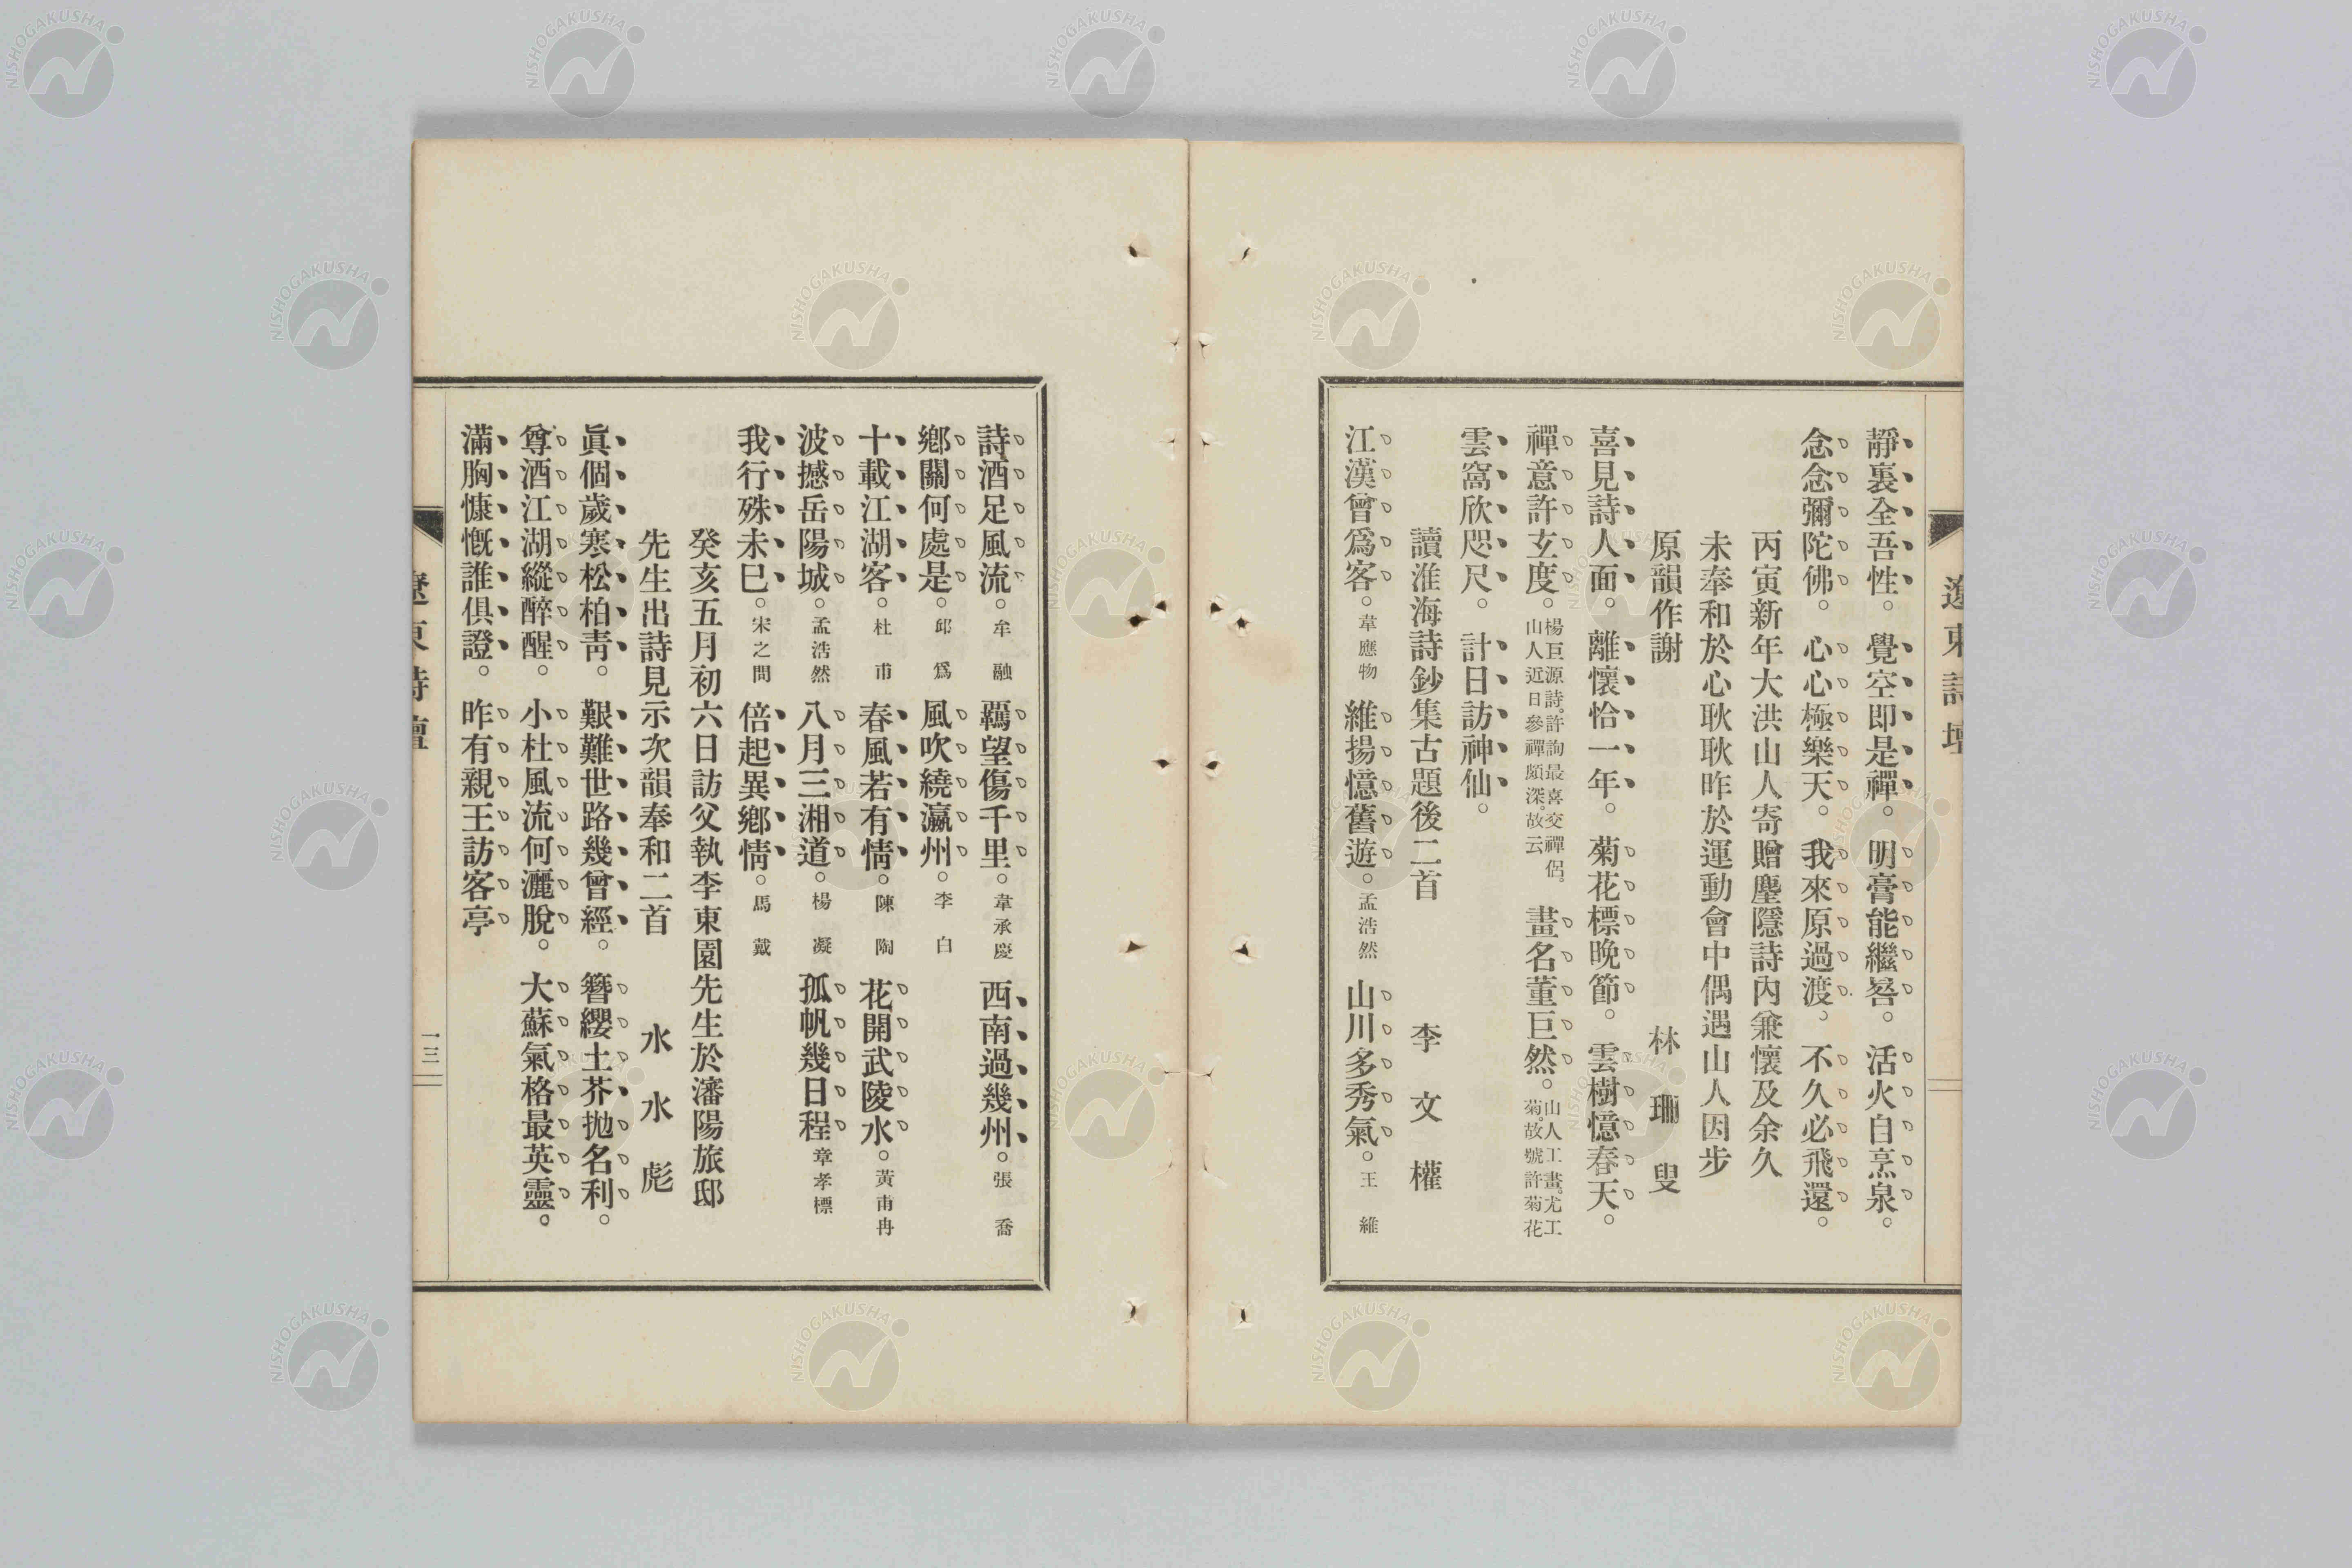 遼東詩壇
靜裏全吾性。覺空即是禪。明膏能繼晷。活火自烹泉。
念念彌陀佛。心心極樂天。我來原過渡。不久必飛還。
丙寅新年大洪山人寄贈塵隱詩內兼懷及余久
未奉和於心耿耿昨於運動會中偶遇山人因步
原韻作謝 林珊叟
喜見詩人面。離懷恰一年。菊花標晚節。雲樹憶春天。
禪意許玄度。楊巨源詩。許詢最喜交禪侶。山人近日參禪頗深。故云 畫名董巨然。山人工畫。尤工菊。故號許菊花
雲窩欣咫尺。計日訪神仙。
讀淮海詩鈔集古題後二首 李文權
江漢曾爲客。韋應物 維揚憶舊遊。孟浩然 山川多秀氣。王維
詩酒足風流。牟融 羈望傷千里。韋承慶 西南過幾州。張喬
鄉關何處是。邱爲 風吹繞瀛州。李白
十載江湖客。杜甫 春風若有情。陳陶 花開武陵水。黃甫冉
波撼岳陽城。孟浩然 八月三湘道。楊凝 孤帆幾日程 章孝標
我行殊未巳。宋之問 倍起異鄉情。馬戴
癸亥五月初六日訪父執李東園先生於瀋陽旅邸
先生出詩見示次韻奉和二首 水水彪
眞個歲寒松柏靑。艱難世路幾曾經。簪纓土芥拋名利。
尊酒江湖縱醉醒。小杜風流何灑脫。大蘇氣格最英靈。
滿胸慷慨誰俱證。昨有親王訪客亭
遼東詩壇
一三
NISHOGAKUSHA